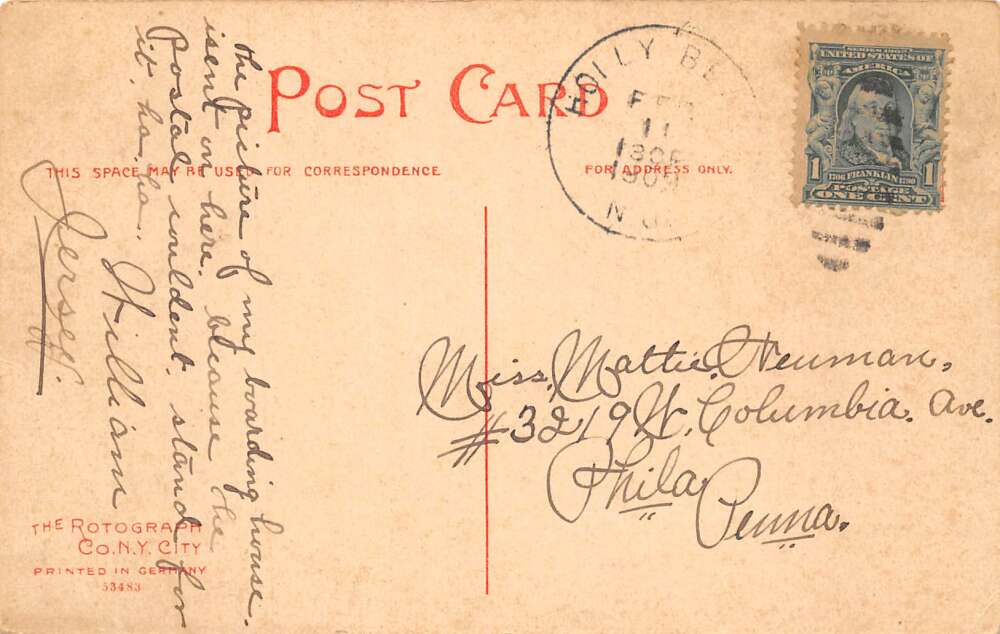 POST CARD
THIS SPACE MAY BE USED FOR CORRESPONDENCE
FOR ADDRESS ONLY.
HOLLY BE
FEB
11
N.J.
SERIES 1902
UNITED STATES OF
AMERICA
1706 FRANKLIN 1790
1 POSTAGE 1
ONE CENT
the picture of my boarding house.
isent on here. because the
Postal wouldent. stand for
it. ha. ha..
William
Jersey.
Miss. Mattie. Neuman.
#3219 W. Columbia. Ave.
Phila
Penna.
THE ROTOGRAPH
CO. N.Y. CITY
PRINTED IN GERMANY
53483